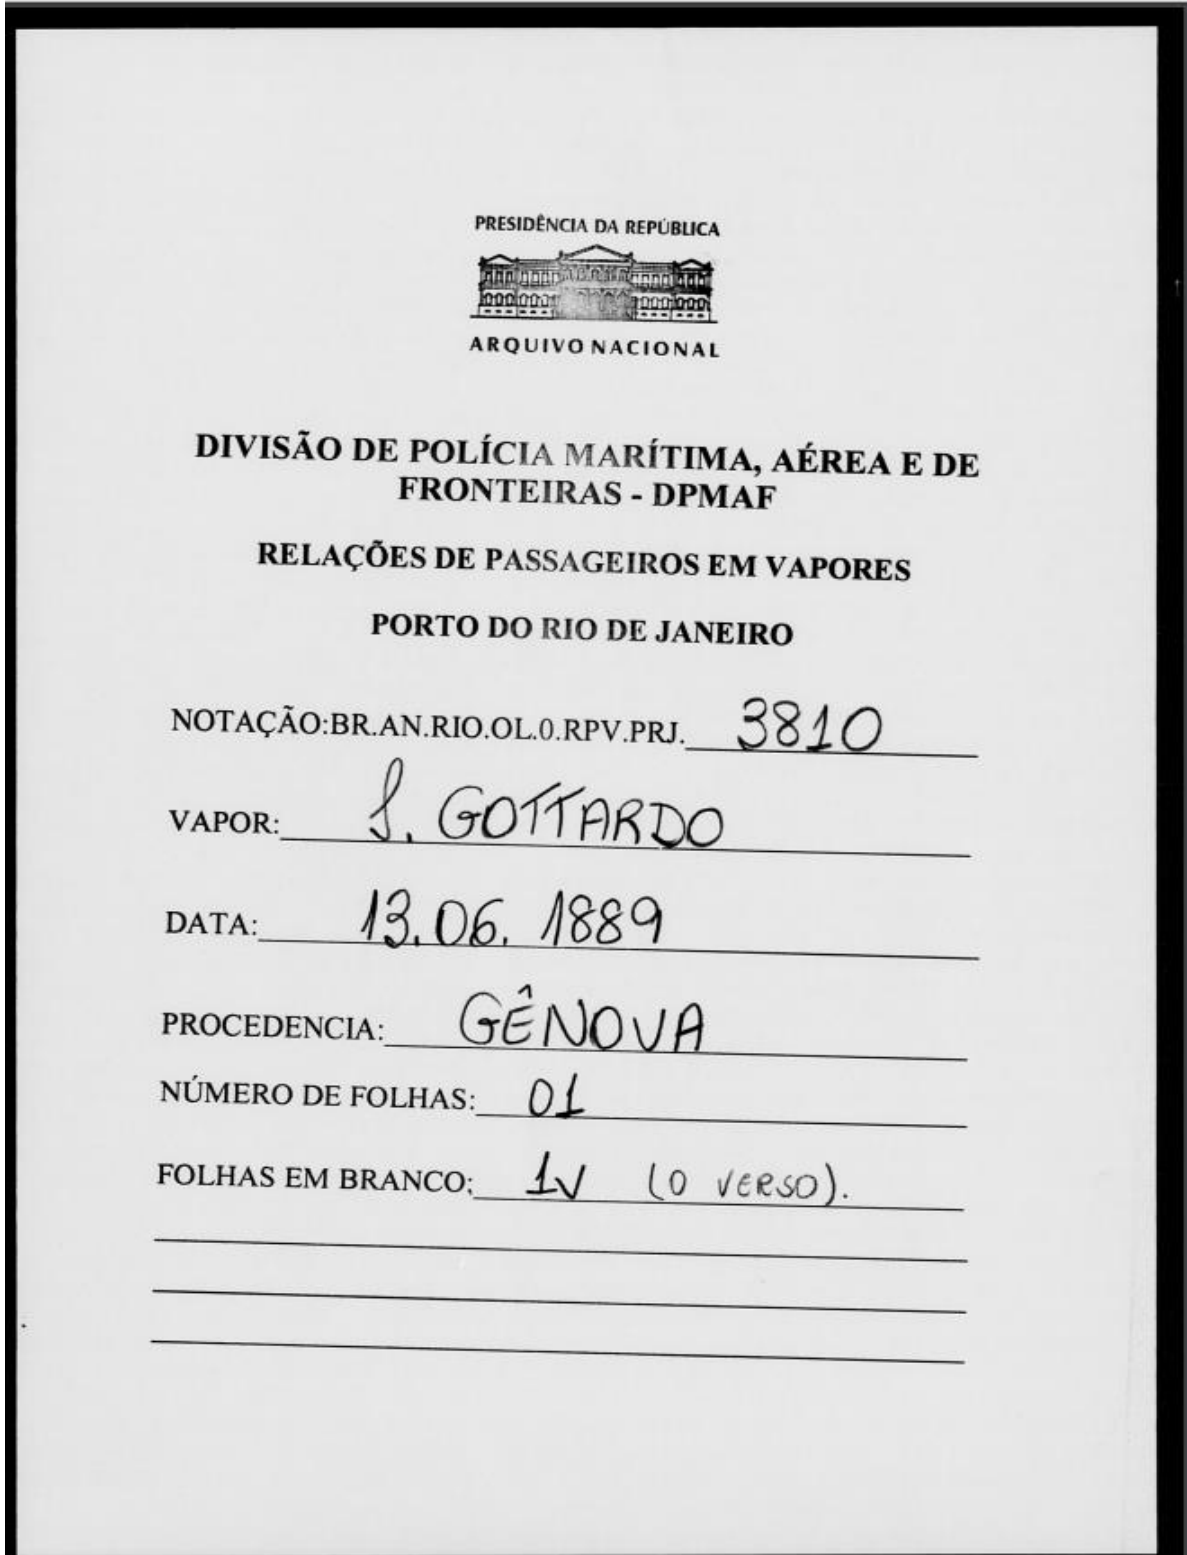 PRESIDÊNCIA DA REPÚBLICA
ARQUIVO NACIONAL
DIVISÃO DE POLÍCIA MARÍTIMA, AÉREA E DE
FRONTEIRAS - DPMAF
RELAÇÕES DE PASSAGEIROS EM VAPORES
PORTO DO RIO DE JANEIRO
NOTAÇÃO:BR.AN.RIO.OL.0.RPV.PRJ. 3810
VAPOR: S. GOTTARDO
DATA: 13.06.1889
PROCEDENCIA: GÊNOVA
NÚMERO DE FOLHAS: 01
FOLHAS EM BRANCO: 1V (O VERSO).